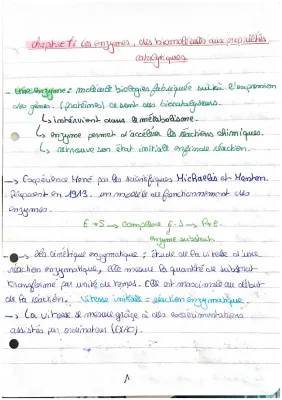 chapitre 7: les enzymes, des biomolécules aux propriétés
catalytiques
- Une enzyme = molécule biologies fabriquée suite à l'expression
des gènes. (protéines) ce sont des biocatalyseurs.
↳ intervient dans le métabolisme.
↳ enzyme permet d'accélérer les réactions chimiques.
↳ retrouve son état initiale en fin de réaction.
-> L'expérience Mené par les scientifiques Michaelis et Menten.
Proposent en 1913. un modèle du fonctionnement des
enzymes.
E + S -> complexe E-S -> P + E.
enzyme substrat
-> La Cinétique enzymatique: étude de la vitesse d'une
réaction enzymatique, elle mesure la quantité de substrat
transformé par unité de temps. Elle est maximale au début
de la réaction. Vitesse initiale = réaction enzymatique.
- La vitesse se mesure grâce à des expérimentations
assistés par ordinateur (EXAO).
1